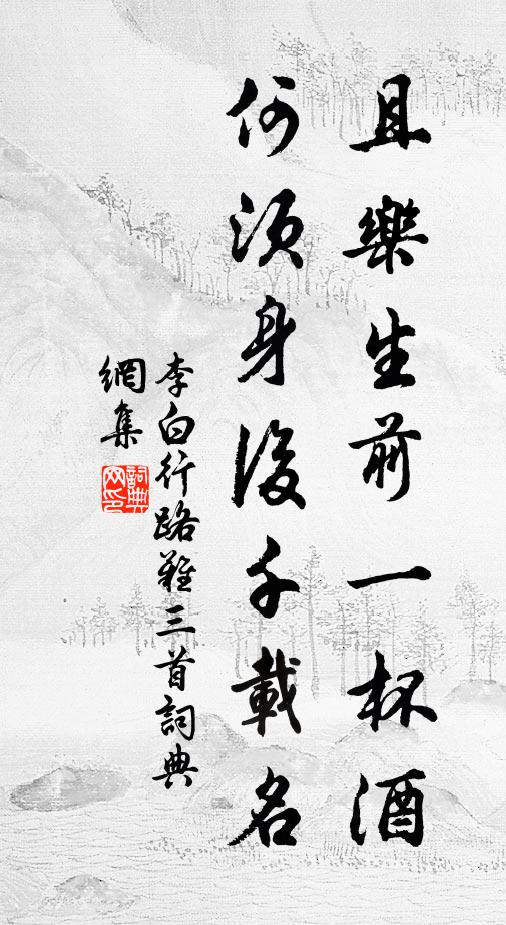 且樂生前一杯酒
何須身後千載名
李白行路難三首詞典
網集
詞典网印